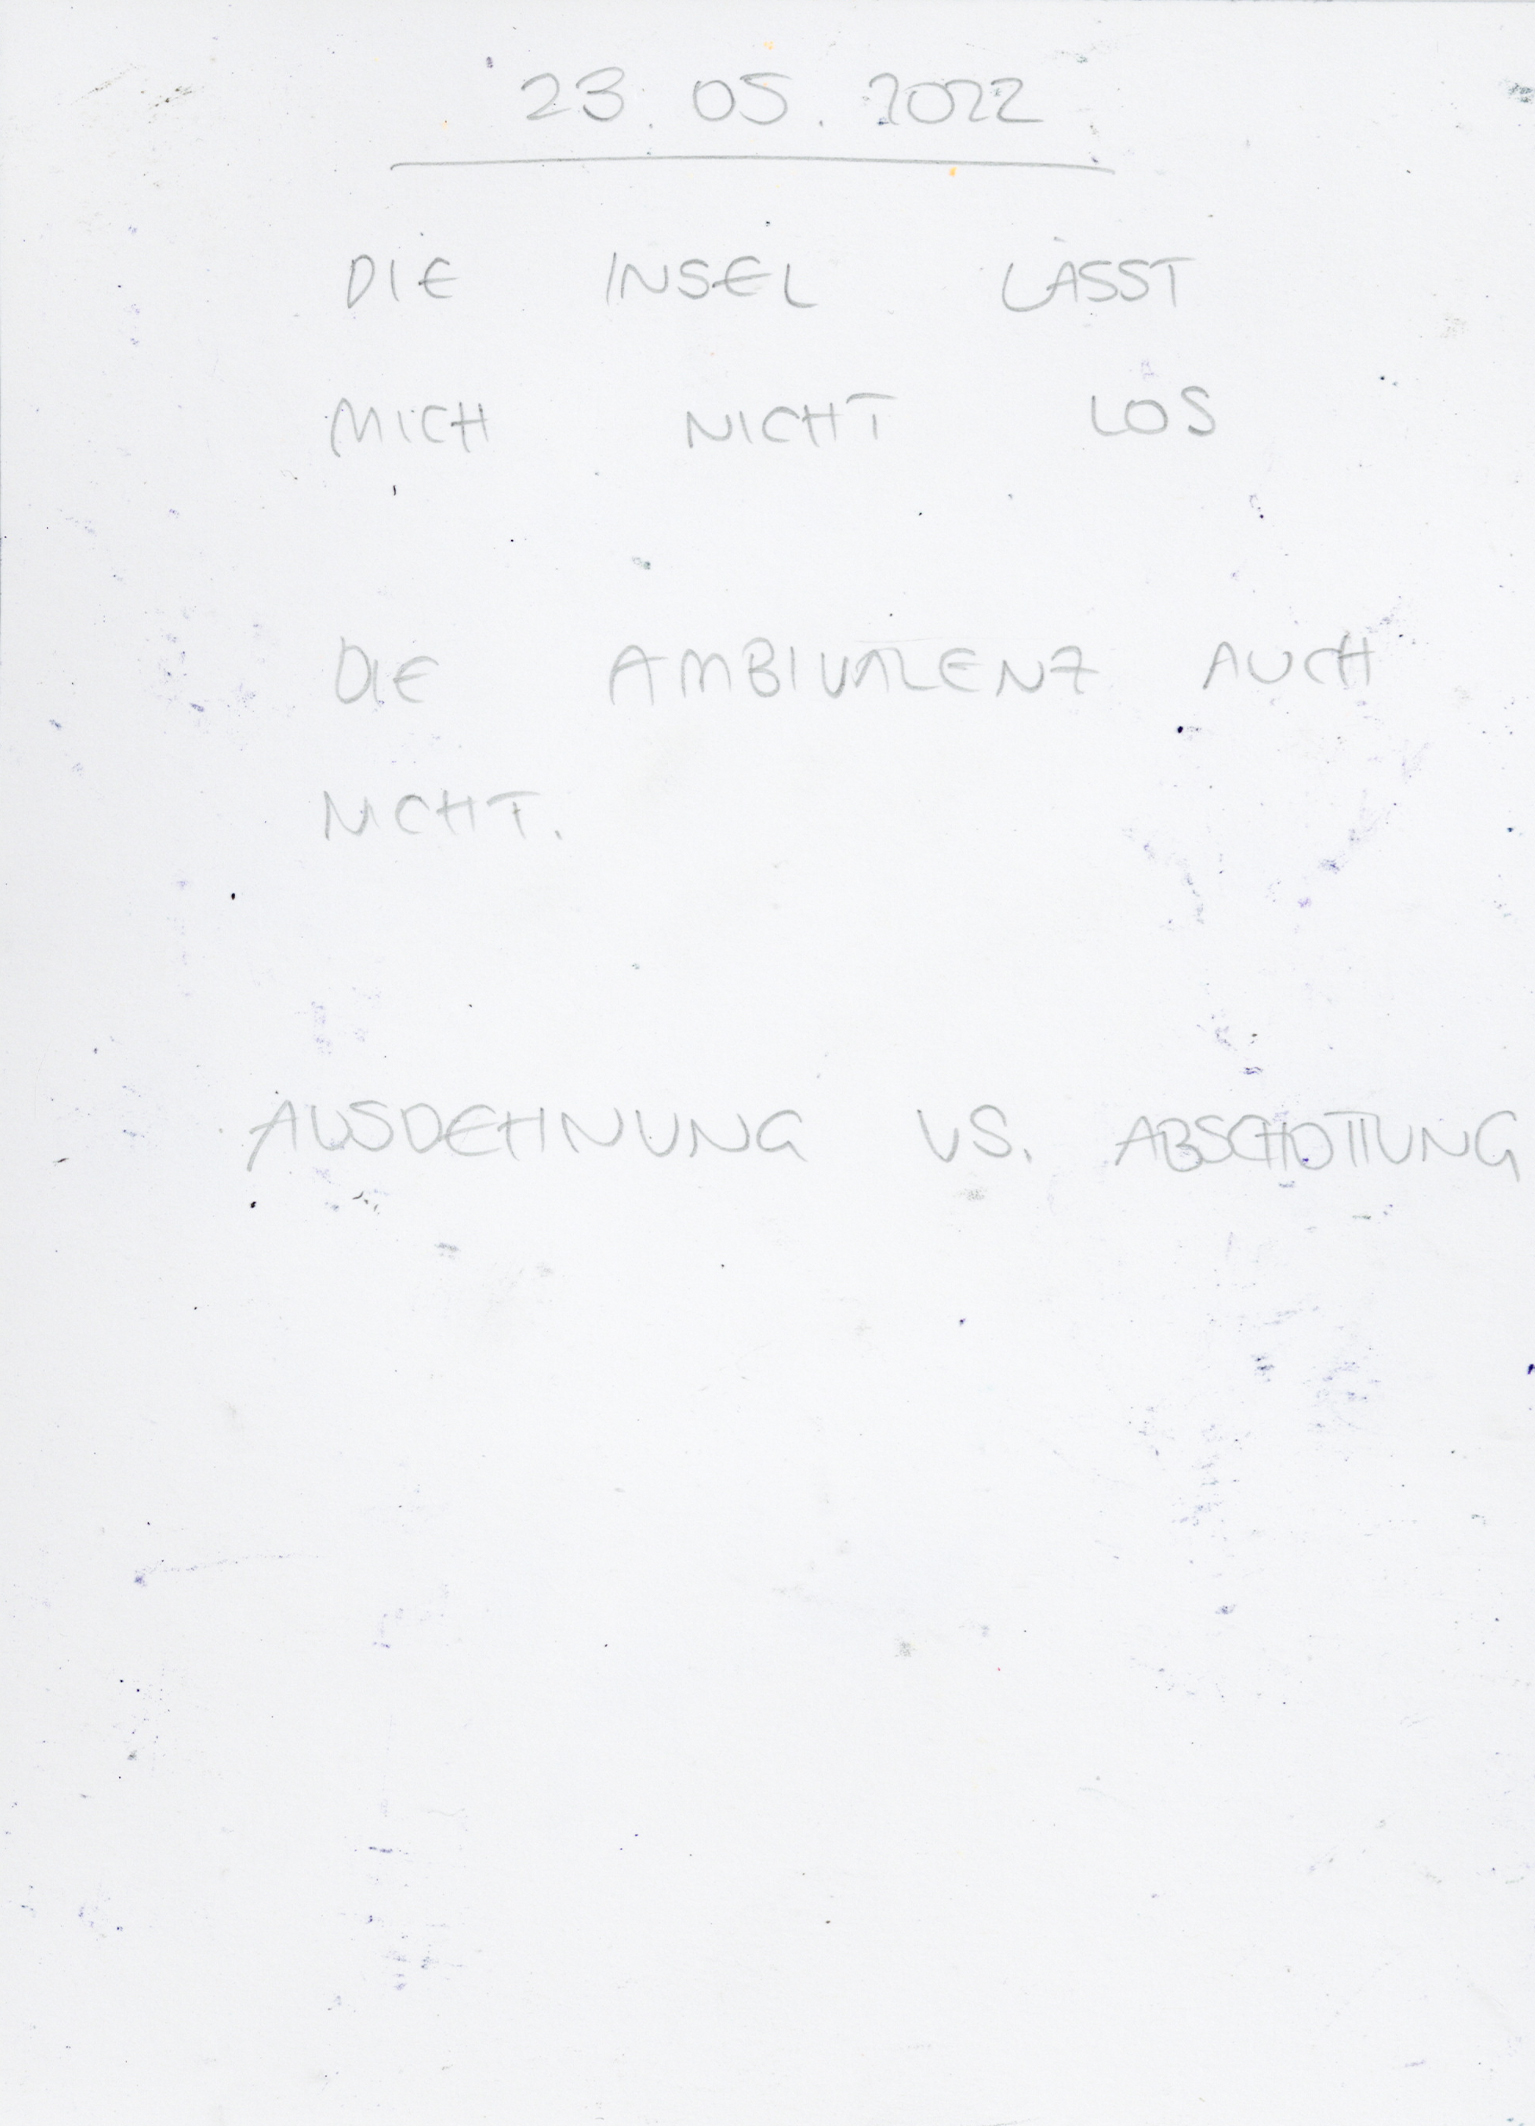 23. 05. 2022
DIE INSEL LASST
MICH NICHT LOS
DIE AMBIVALENZ AUCH
NICHT.
AUSDEHNUNG VS. ABSCHOTTUNG